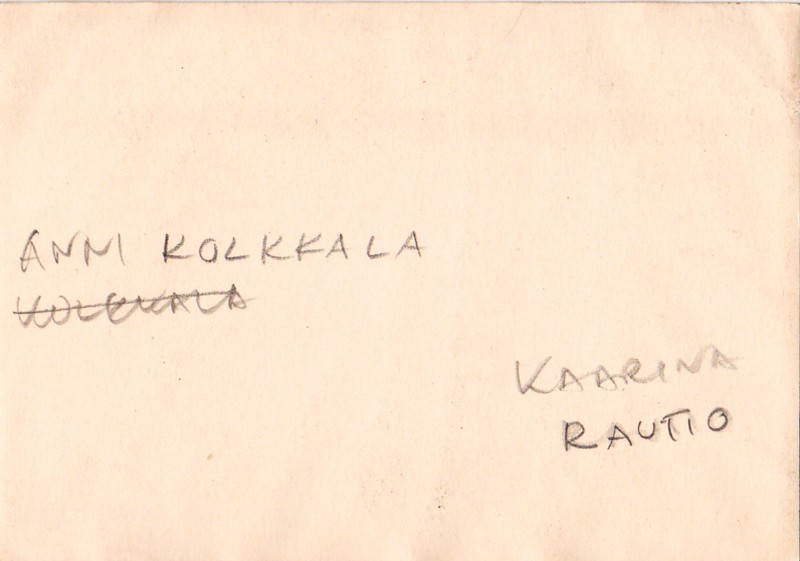 ANNI KOLKKALA
KOLKKALA
KAARINA
RAUTIO